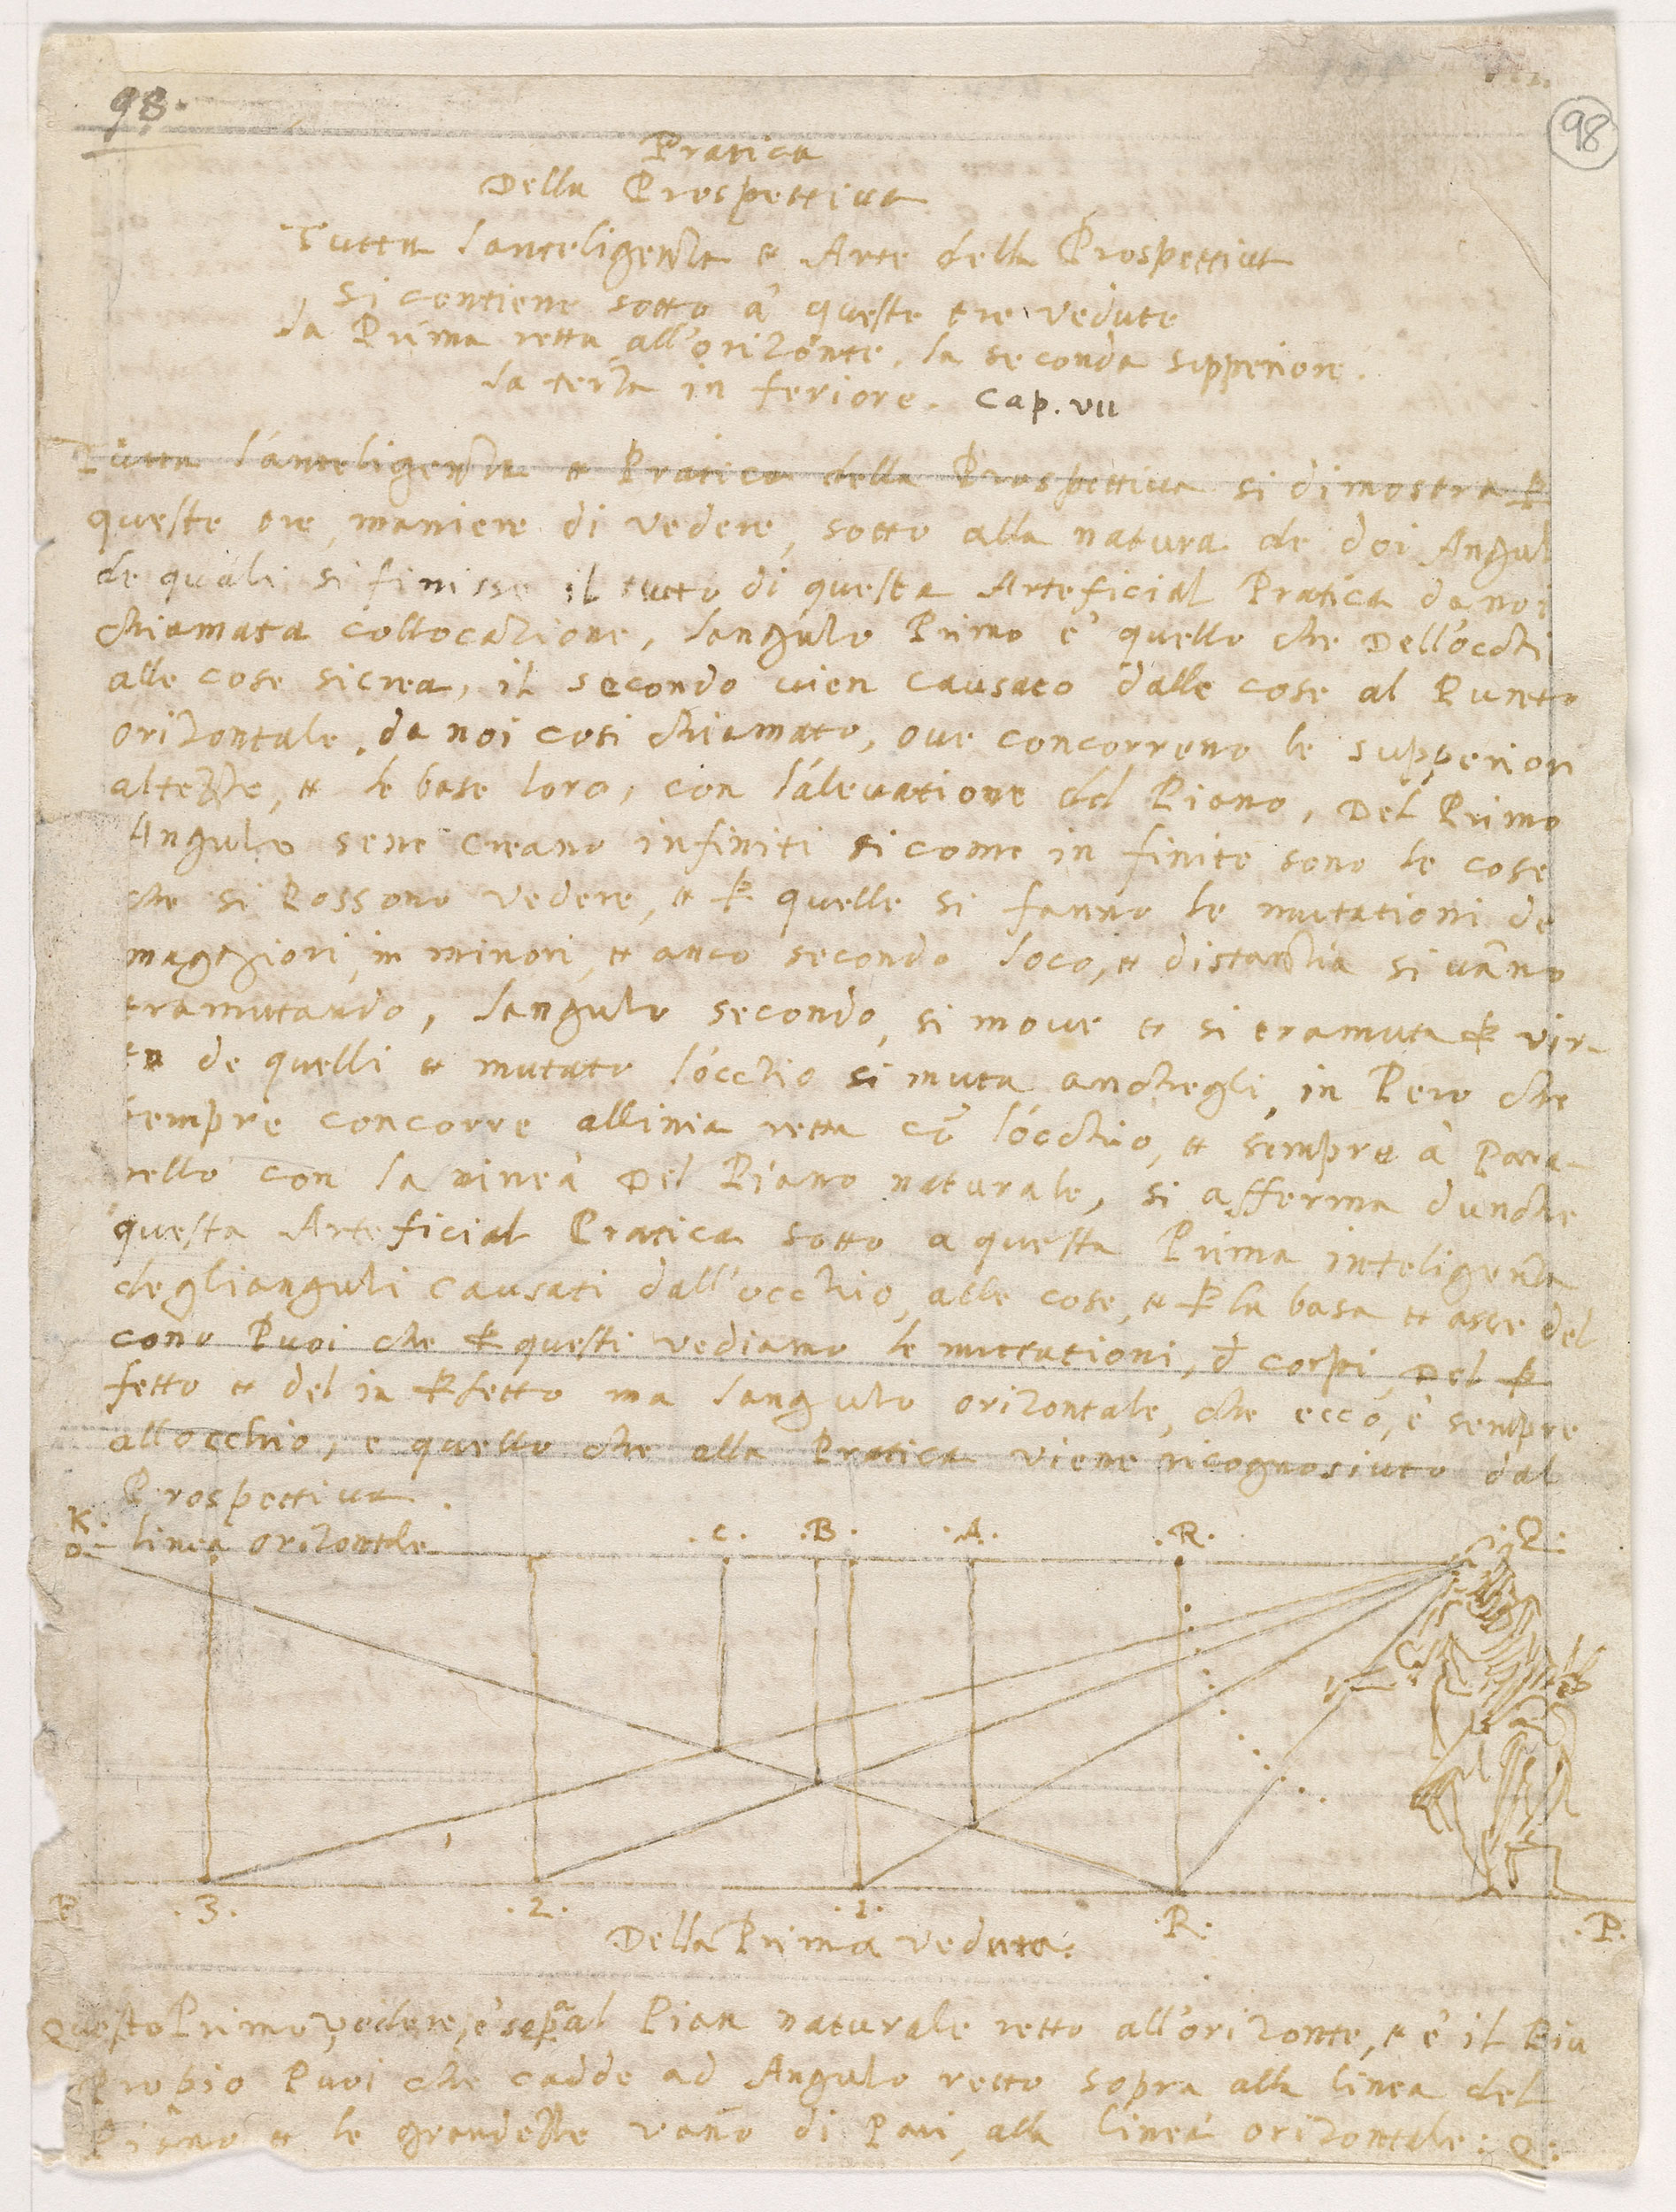 98.
98
Pratica
Della Prospettiua
Tutta l'anteligenza et Arte della Prospettiua
si contiene sotto à queste tre vedute
la Prima retta all'orizonte. la seconda supperiore.
la terza in feriore. Cap. VII
Tutta l'anteligenza et Pratica della Prospettiua si dimostra ꝑ
queste tre maniere di vedere, sotto alla natura de doi Angul
de quali si finisse il tutto di questa Arteficial Pratica da noi
chiamata collocazione, l'angulo Primo e' quello che Dell'occhi
alle cose si crea, il secondo vien causato dalle cose al Punto
orizontale, da noi cosi chiamato, oue concorreno le supperiori
altezze, et le base loro, con l'aleuatione del Piano, Del Primo
Angulo sene creano infiniti si come in finite sono le cose
che si Possono vedere, et ꝑ quelle si fanno le mutationi de
maggiori in minori, et anco secondo loco, et distanzia si vanno
tramutando, l'angulo secondo, si moue et si tramuta ꝑ vir-
tu de quelli et mutato l'occhio si muta anchegli, in Pero che
sempre concorre allinia retta cō l'occhio, et sempre à Para-
rello con la linea Del Piano naturale, si afferma dunche
questa Arteficial Pratica sotto a questa Prima inteligenza
deglianguli causati dall'occhio, alle cose, et ꝑ la basa et asse del
cono Puoi che ꝑ questi vediamo le muttationi, d corpi, Del ꝑ
fetto et del in ꝑfetto ma l'angulo orizontale, che ecco, e' sempre
all occhio, e quello che alla Pratica viene ricognosiuto dal
Prospettiua.
K. linea orizontale .C. .B. .A. .R. Q:
o
P .3. .2. .1. R. .P.
Della Prima veduta:
Questo Primo vedere, e' sopᵃ al Pian naturale retto all'orizonte, et e' il Piu
Propio Puoi che cadde ad Angulo retto sopra alla linea del
Piano et le grandezze vano di Pari, alla linea orizontale: Q: